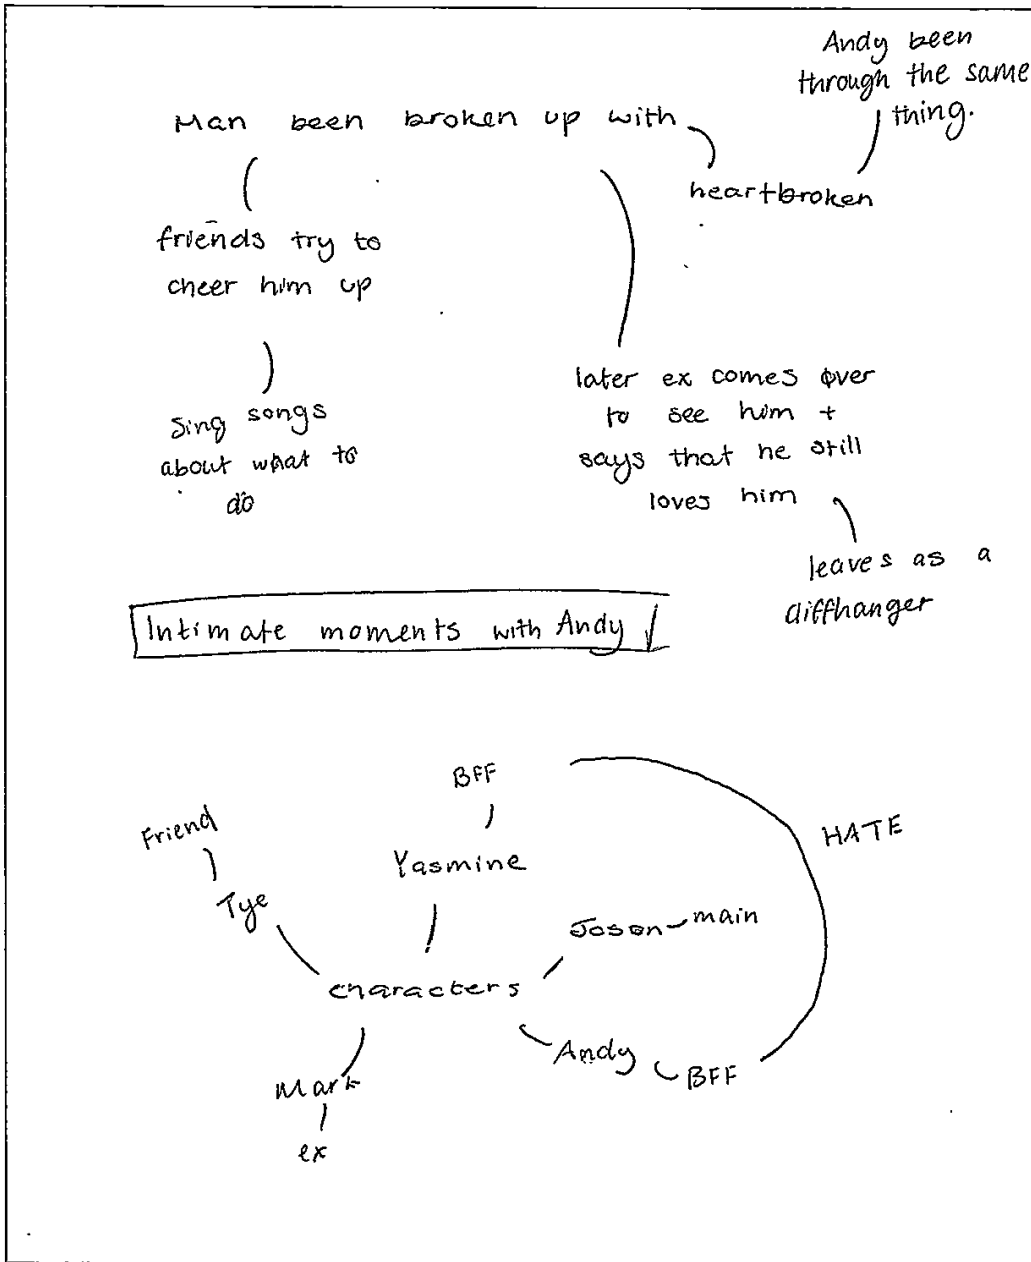 Andy been
through the same
thing.
Man been broken up with
heartbroken
friends try to
cheer him up
sing songs
about what to
do
later ex comes over
to see him +
says that he still
loves him
leaves as a
cliffhanger
Intimate moments with Andy
BFF
HATE
Friend
Yasmine
Tye
Joson main
characters
Andy BFF
Mark
ex